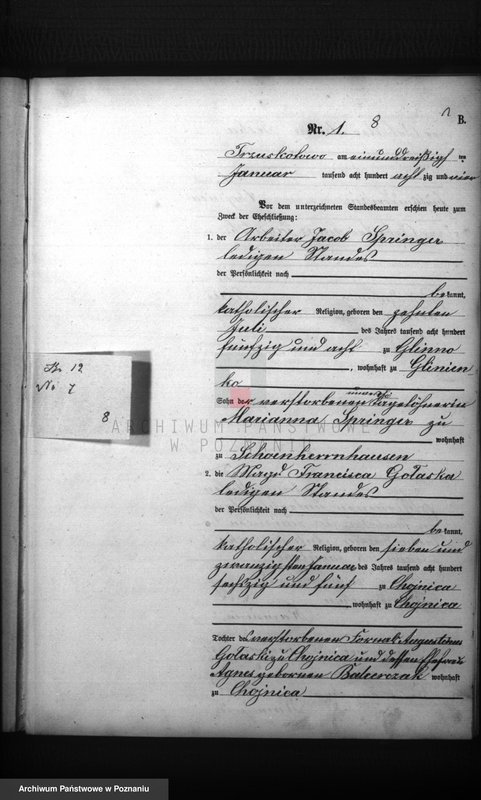 B.
Nr. 1. 8
Trzuskotowo am einunddreißigsten
Januar tausend acht hundert acht zig und vier
Vor dem unterzeichneten Standesbeamten erschien heute zum
Zweck der Eheschließung:
1. der Arbeiter Jacob Springer
ledigen Standes
der Persönlichkeit nach
bekannt,
katholischer Religion, geboren den zehnten
Juli des Jahres tausend acht hundert
fünfzig und acht zu Glinno
, wohnhaft zu Glinien
ko
Sohn der verstorbenen Tagelöhnerin
Marianna Springer zu
wohnhaft
zu Schoenherrnhausen
2. die Magd Francisca Gołaska
ledigen Standes
der Persönlichkeit nach
bekannt,
katholischer Religion, geboren den sieben und
zwanzigsten Januar des Jahres tausend acht hundert
sechszig und fünf zu Chojnica
, wohnhaft zu Chojnica
Tochter des verstorbenen Fornal Augustin
Gołaski zu Chojnica und dessen Ehefrau
Agnes gebornen Balcerczak wohnhaft
zu Chojnica
No 7
8
ARCHIWUM PAŃSTWOWE
W POZNANIU
Archiwum Państwowe w Poznaniu